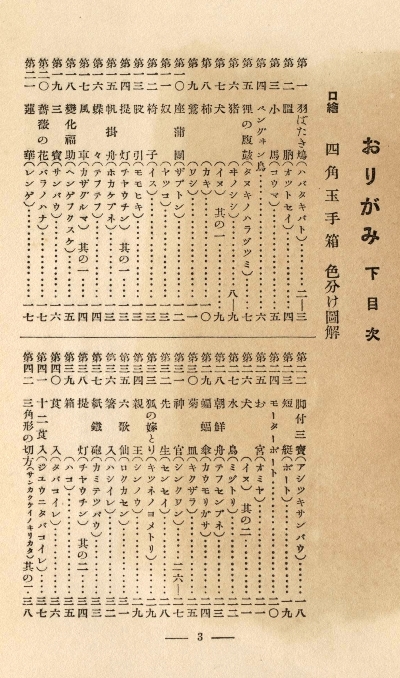 おりがみ 下 目次
口繪 四角玉手箱 色分け圖解
第一 羽ばたき鳩(ハバタキバト)……二―三
第二 膃肭(オツトセイ)……四
第三 小馬(コウマ)……五
第四 ペンギン鳥……六
第五 狸の腹鼓(タヌキノハラヅツミ)……七
第六 猪(ヰノシシ)……八―九
第七 犬(イヌ)其の一……九
第八 柿(カキ)……一〇
第九 鷲(ワシ)……一一
第一〇 座蒲團(ザブトン)……一二
第一一 奴(ヤツコ)……一二
第一二 椅子(イス)……一三
第一三 股引(モモヒキ)……一三
第一四 提灯(チヤウチン)其の一……一三
第一五 帆掛舟(ホカケブネ)……一三
第一六 蝶々(テフテフ)……一四
第一七 風車(カザグルマ)其の一……一四
第一八 變化福助(ヘンゲフクスケ)……一五
第一九 三寶(サンバウ)……一六
第二〇 薔薇の花(バラノハナ)……一七
第二一 蓮華(レンゲ)……一七
第二二 脚付三寶(アシツキサンバウ)……一八
第二三 短艇(ボート)……一九
第二四 モーターボート……二〇
第二五 お宮(オミヤ)……二一
第二六 犬(イヌ)其の二……二一
第二七 水鳥(ミヅトリ)……二二
第二八 朝鮮舟(テフセンブネ)……二三
第二九 蝙蝠傘(カウモリガサ)……二四
第三〇 菊皿(キクザラ)……二五
第三一 神官(シンクワン)……二六―二七
第三二 先生(センセイ)……二八
第三三 狐の嫁とり(キツネノヨメトリ)……二九
第三四 親王(シンノウ)……二九
第三五 六歌仙(ロクカセン)……三一
第三六 箸入(ハシイレ)……三二
第三七 紙鐵砲(カミテツパウ)……三三
第三八 提灯(チヤウチン)其の二……三四
第三九 箱(ハコ)……三五
第四〇 莨入(タバコイレ)……三六
第四一 十二莨入(ジユウニタバコイレ)……三七
第四二 三角形の切方(サンカクケイノキリカタ)其の一 三八
― 3 ―